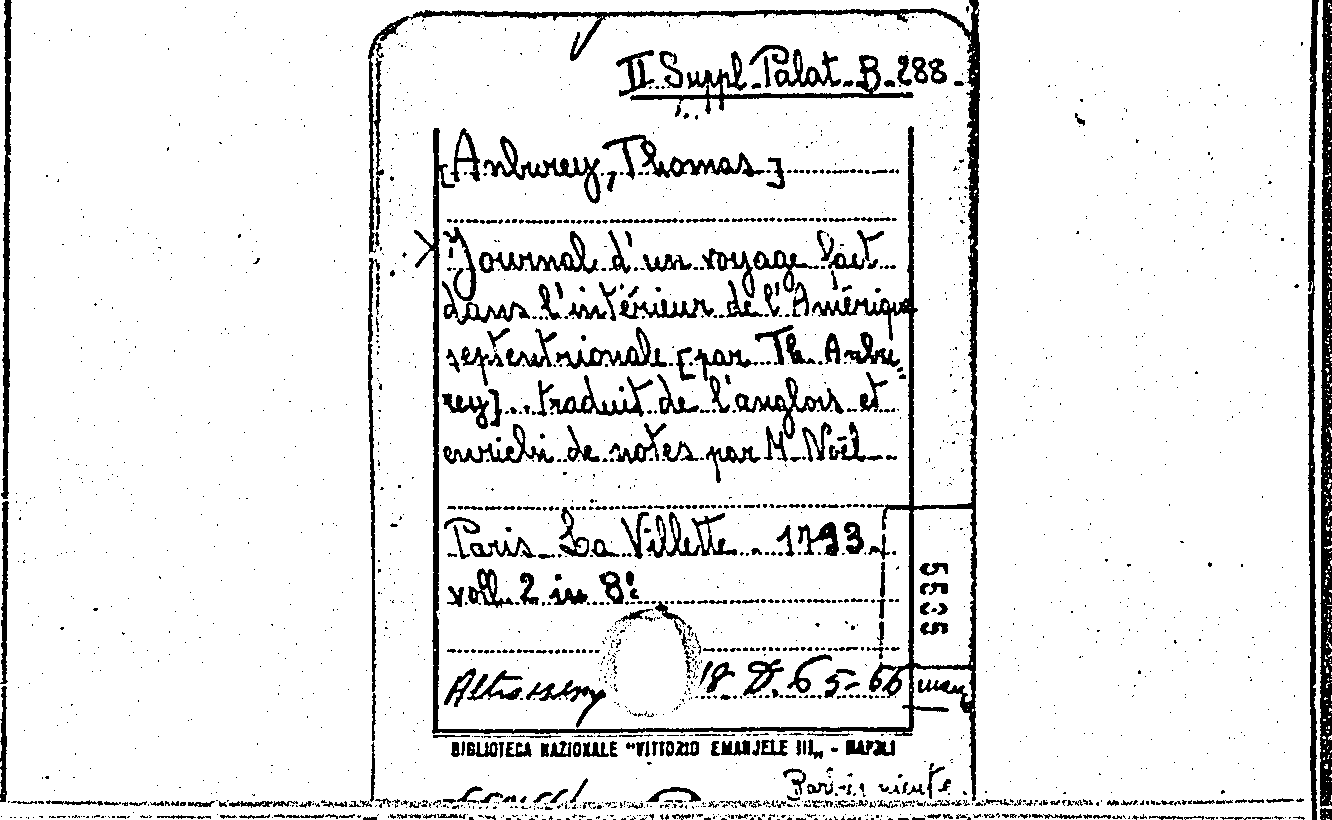 II Suppl. Palat. B. 288.
[Anburey, Thomas]
Journal d'un voyage fait
dans l'intérieur de l'Amérique
septentrionale [par Th. Anbu„
rey]...traduit de l'anglois et
enrichi de notes par M. Noël
Paris La Villette. 1793.
voll. 2 in 8°
Altro esemp 18. D. 65-66
5535
BIBLIOTECA NAZIONALE "VITTORIO EMANUELE III„ - NAPOLI